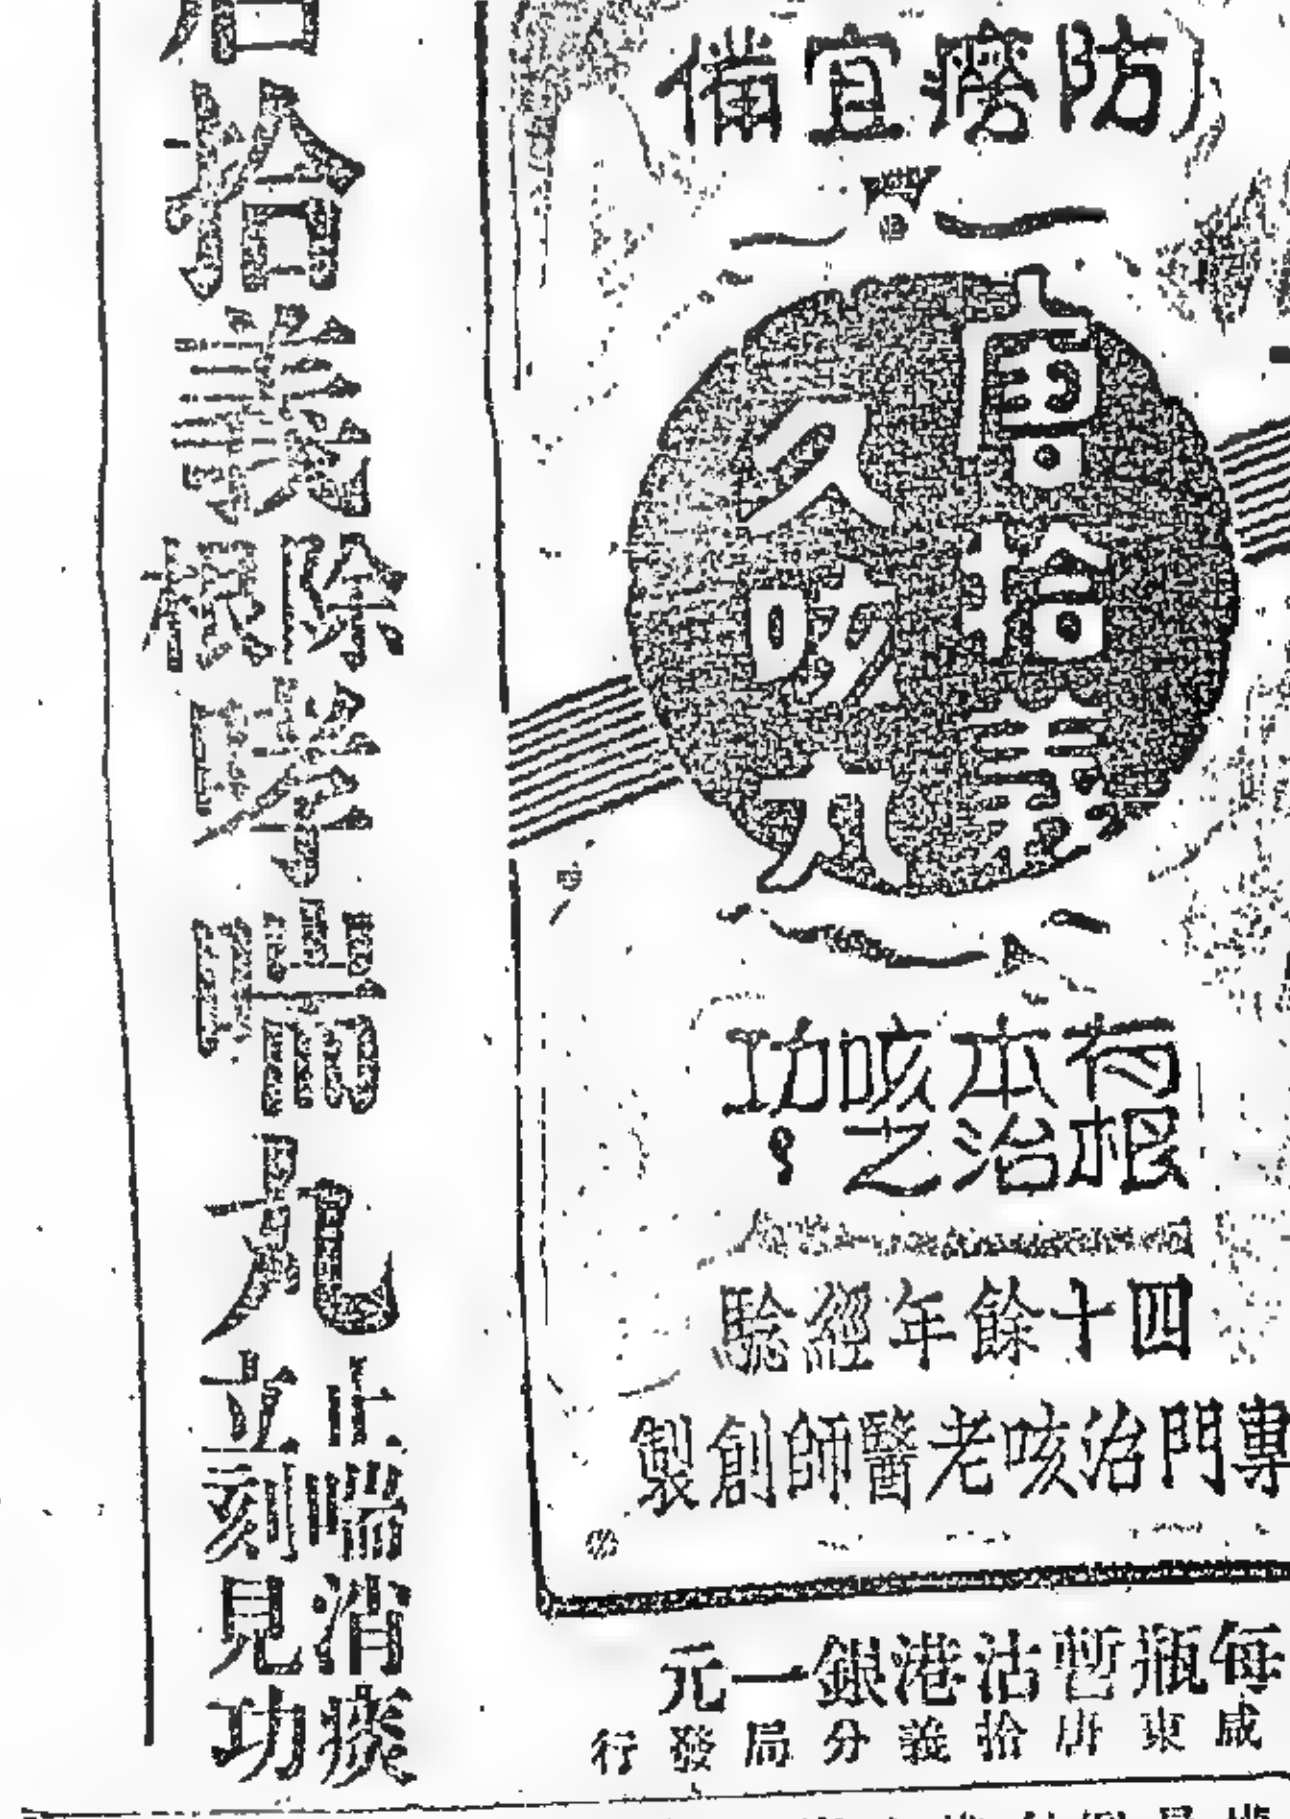 防癆宜備
唐拾義
久咳丸
有根本治咳之功。
四十餘年經驗
專門治咳老醫師創製
每瓶暫沽港銀一元
威東唐拾義分局發行
唐拾義
除根
哮喘丸
止喘消痰
立刻見功